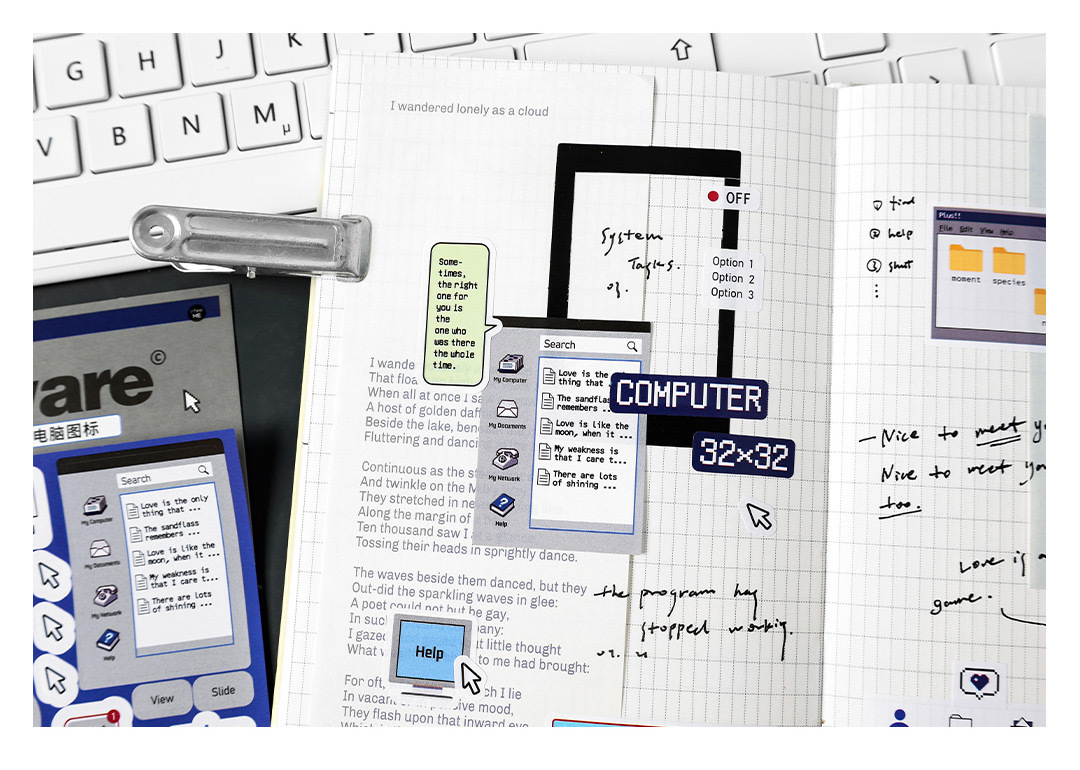 G
H
J
K
V
B
N
M
µ
I wandered lonely as a cloud
OFF
System
Tasks.
Option 1
Option 2
Option 3
Some-
times,
the right
one for
you is
the
one who
was there
the whole
time.
Search
My Computer
My Documents
My Network
Help
Love is the
thing that
The sandflas
remembers ...
Love is like the
moon, when it ...
My weakness is
that I care t...
There are lots
of shining ...
COMPUTER
32×32
I wande
That floa
When all at once I sa
A host of golden daff
Beside the lake, bene
Fluttering and danci
Continuous as the st
And twinkle on the M
They stretched in ne
Along the margin of
Ten thousand saw I a
Tossing their heads in sprightly dance.
The waves beside them danced, but they
Out-did the sparkling waves in glee:
A poet could not but be gay,
In such pany:
I gazed t little thought
What to me had brought:
For oft, ch I lie
In vacant or in pensive mood,
They flash upon that inward eye
Help
the program has
stopped working.
① find
② help
③ shut
Plus!!
File Edit View Help
moment
species
— Nice to meet yo
Nice to meet you
too.
Love is a
game.
ME
ware©
电脑图标
Search
My Computer
My Documents
My Network
Help
Love is the only
thing that ...
The sandflass
remembers ...
Love is like the
moon, when it ...
My weakness is
that I care t...
There are lots
of shining ...
View
Slide
1